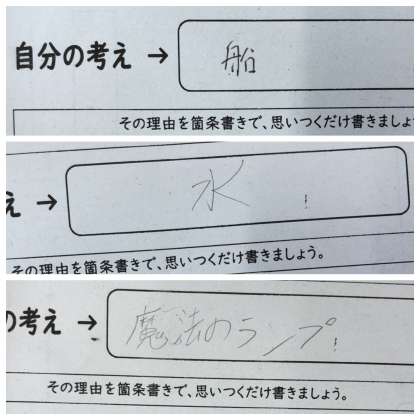 自分の考え → 船
その理由を箇条書きで、思いつくだけ書きましょ
え → 水
その理由を箇条書きで、思いつくだけ書きましょう。
の考え → 魔法のランプ
その理由を箇条書きで、思いつくだけ書きましょう。